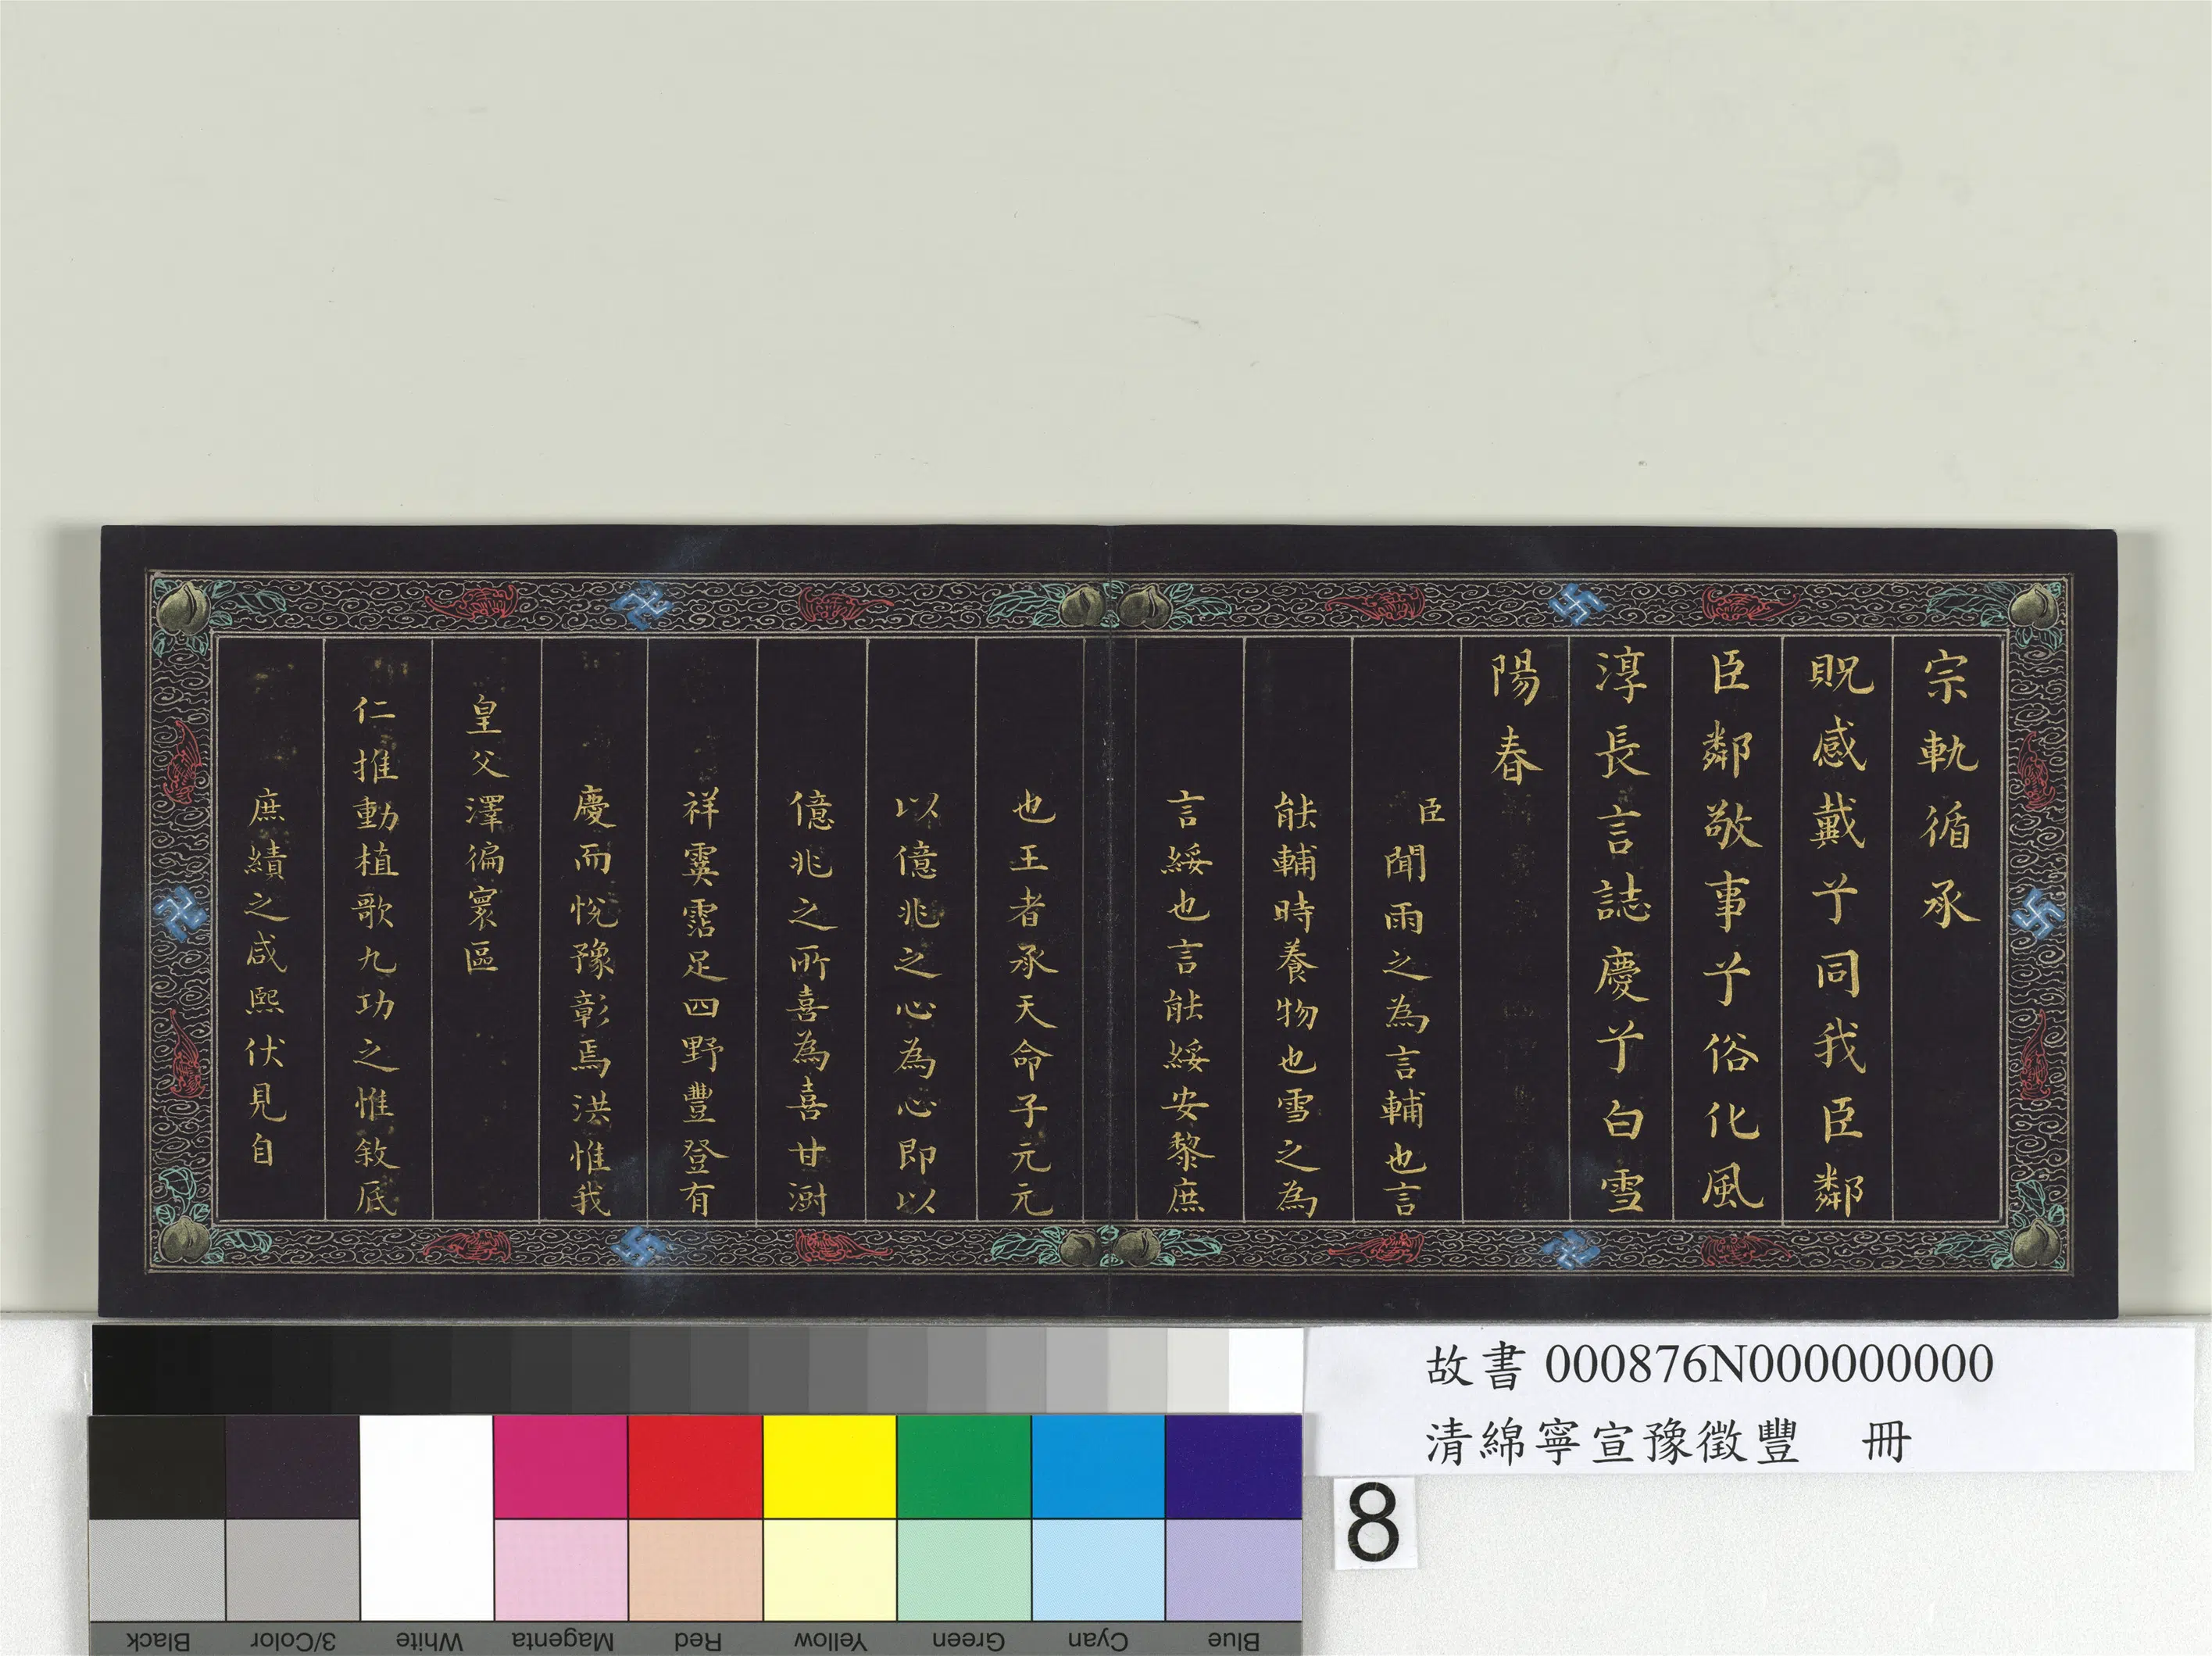 宗軌循承
貺感戴兮同我臣鄰
臣鄰敬事兮俗化風
淳長言誌慶兮白雪
陽春
臣聞雨之為言輔也言
能輔時養物也雪之為
言綏也言能綏安黎庶
也王者承天命子元元
以億兆之心為心即以
億兆之所喜為喜甘澍
祥霙霑足四野豐登有
慶而悅豫彰焉洪惟我
皇父澤徧寰區
仁推動植歌九功之惟敘底
庶績之咸熙伏見自
故書 000876N000000000
清綿寧宣豫徵豐 冊
8
Black
3/Color
White
Magenta
Red
Yellow
Green
Cyan
Blue